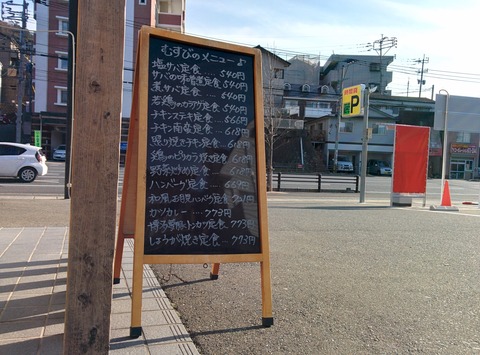 むすびのメニュー♪
塩サバ定食 ... 540円
サバの味噌煮定食 540円
煮サバ定食 ... 640円
若鶏のカラアゲ定食 540円
チキンステキ定食 ... 618円
チキン南蛮定食 ... 618円
照り焼きチキン定食 ... 618円
鶏のピリカラ焼き定食 618円
野菜 定食 ... 618円
ハンバーグ定食 ... 669円
和風 ハンバーグ定食
カツカレー ... 773円
トンカツ定食 ... 773円
しょうが焼き定食 ... 773円
P